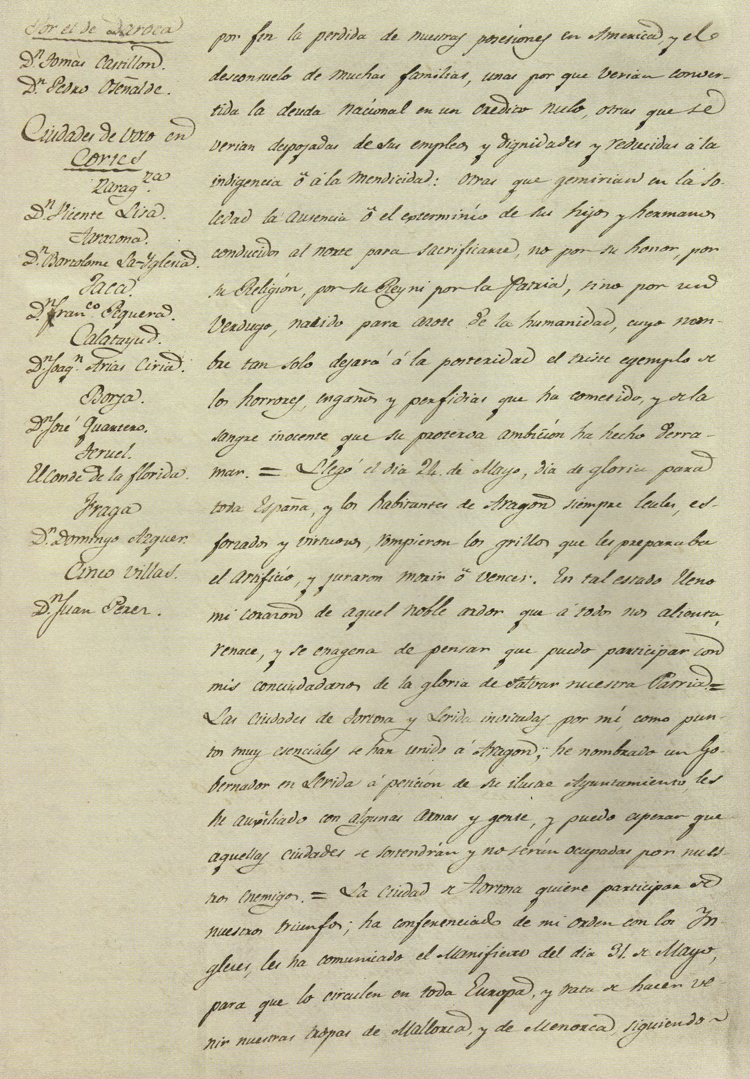 Por el de Daroca
Dⁿ Tomas Castillon.
Dⁿ Pedro Oseñalde.
Ciudades de voto en
Cortes
Zarag.ᶻᵃ
Dⁿ Vicente Lisa.
Tarazona.
Dⁿ Bartolome La-Yglesia.
Jaca.
Dⁿ Franᶜᵒ Peguera.
Calatayud.
Dⁿ Joaqⁿ Arias Ciria.
Borja.
Dⁿ José Quartero.
Teruel.
El conde de la florida.
Fraga
Dⁿ Domingo Azguer.
Cinco Villas.
Dⁿ Juan Perez.
por fin la perdida de nuestras posesiones en America, y el
desconsuelo de muchas familias, unas por que verian conver-
tida la deuda nacional en un credito nulo, otras que se
verian despojadas de sus empleos y dignidades y reducidas á la
indigencia ó á la mendicidad: otras que gemirian en la so-
ledad la ausencia ó el exterminio de sus hijos y hermanos
conducidos al norte para sacrificarse, no por su honor, por
su Religión, por su Rey ni por la Patria, sino por un
verdugo, nacido para azote de la humanidad, cuyo nom-
bre tan solo dejará á la posteridad el triste egemplo de
los horrores, engaños y perfidias que ha cometido, y de la
sangre inocente que su proterva ambición ha hecho derra-
mar. = Llegó el dia 24 de Mayo, dia de gloria para
toda España, y los habitantes de Aragon siempre leales, es-
forzados y virtuosos, rompieron los grillos que les preparaba
el artificio, y juraron morir ó vencer. En tal estado lleno
mi corazon de aquel noble ardor que á todos nos alienta,
renace, y se enagena de pensar que puedo participar con
mis conciudadanos de la gloria de salvar nuestra Patria =
Las ciudades de Tortosa y Lerida invitadas por mí, como pun-
tos muy esenciales se han unido á Aragon; he nombrado un Go-
bernador en Lerida á peticion de su ilustre Ayuntamiento, les
he auxiliado con algunas armas y gente, y puedo esperar que
aquellas ciudades se sostendrán y no serán ocupadas por nues-
tros enemigos. = La ciudad de Tortosa quiere participar de
nuestros triunfos; ha conferenciado de mi orden con los In-
gleses, les ha comunicado el Manifiesto del dia 31 de Mayo,
para que lo circulen en toda Europa, y trata de hacer ve-
nir nuestras tropas de Mallorca, y de Menorca, siguiendo